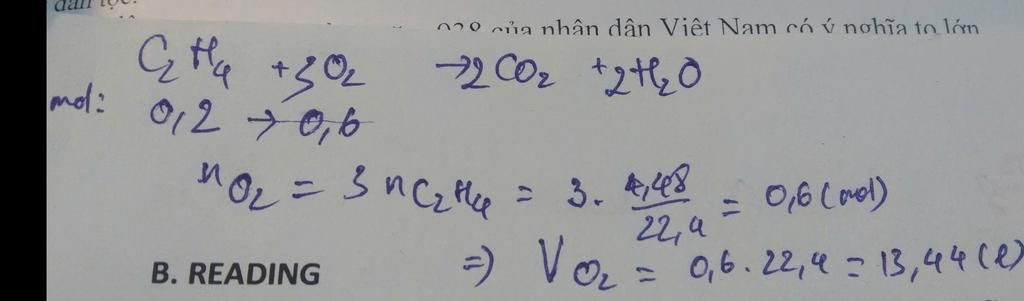 dân tộc.
của nhân dân Việt Nam có ý nghĩa to lớn
C₂H₄ + 3O₂ → 2CO₂ + 2H₂O
mol: 0,2 → 0,6
nO₂ = 3 nC₂H₄ = 3. 4,48/22,4 = 0,6 (mol)
B. READING
=) VO₂ = 0,6 . 22,4 = 13,44 (l)